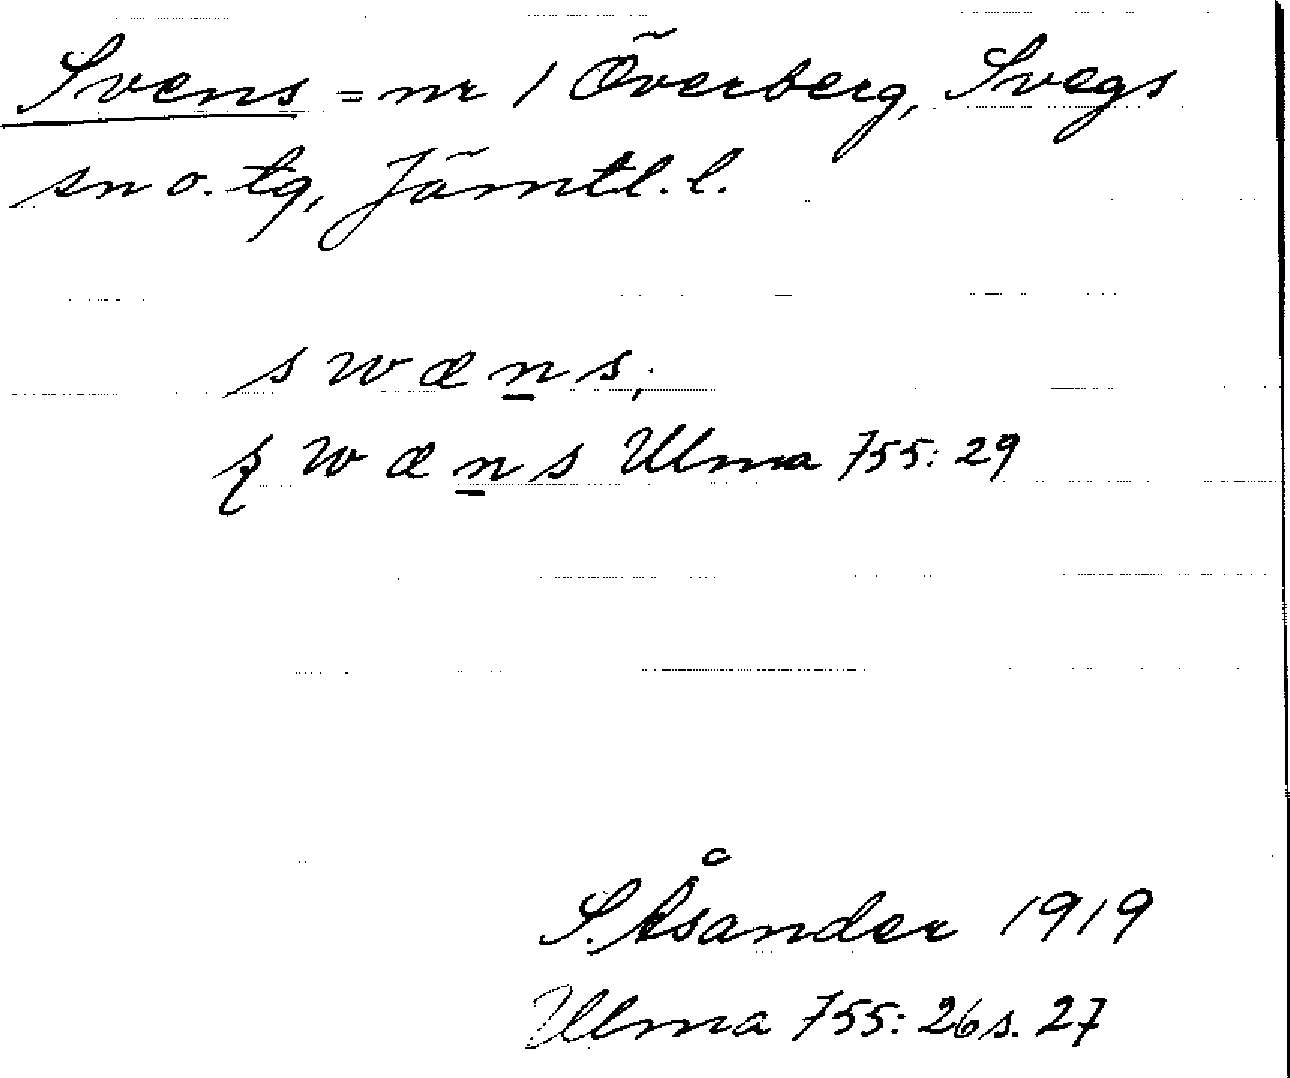 Svens = nr 1 Överberg, Svegs
sn o. tg, Jämtl. l.
swæns;
swæns Ulma 755: 29
S. Åsander 1919
Ulma 755: 26 s. 27